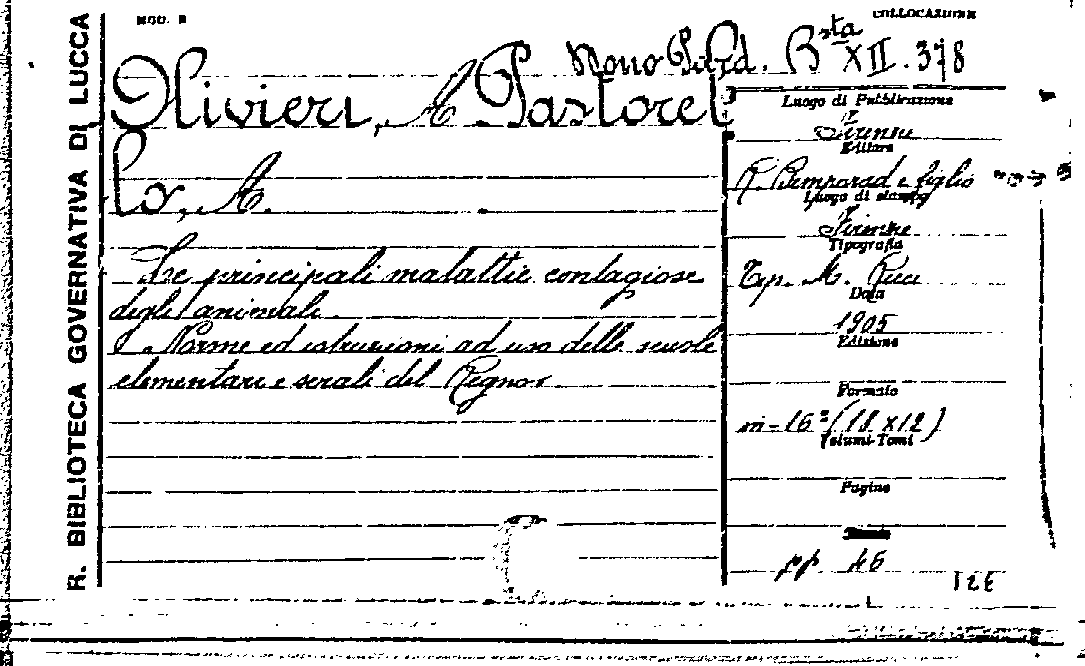 MOD. B
COLLOCAZIONE
Bsta XII. 378
R. BIBLIOTECA GOVERNATIVA DI LUCCA
Olivieri, A Pastorel
lo, A.
Le principali malattie contagiose
degli animali.
Norme ed istruzioni ad uso delle scuole
elementari e serali del Regno.
Luogo di Pubblicazione
Firenze
Editore
R. Bemporad e figlio
Luogo di stampa
Firenze
Tipografia
Tip. M. Ricci
Data
1905
Edizione
Formato
in-16° (18 x 12)
Volumi-Tomi
Pagine
pp 46